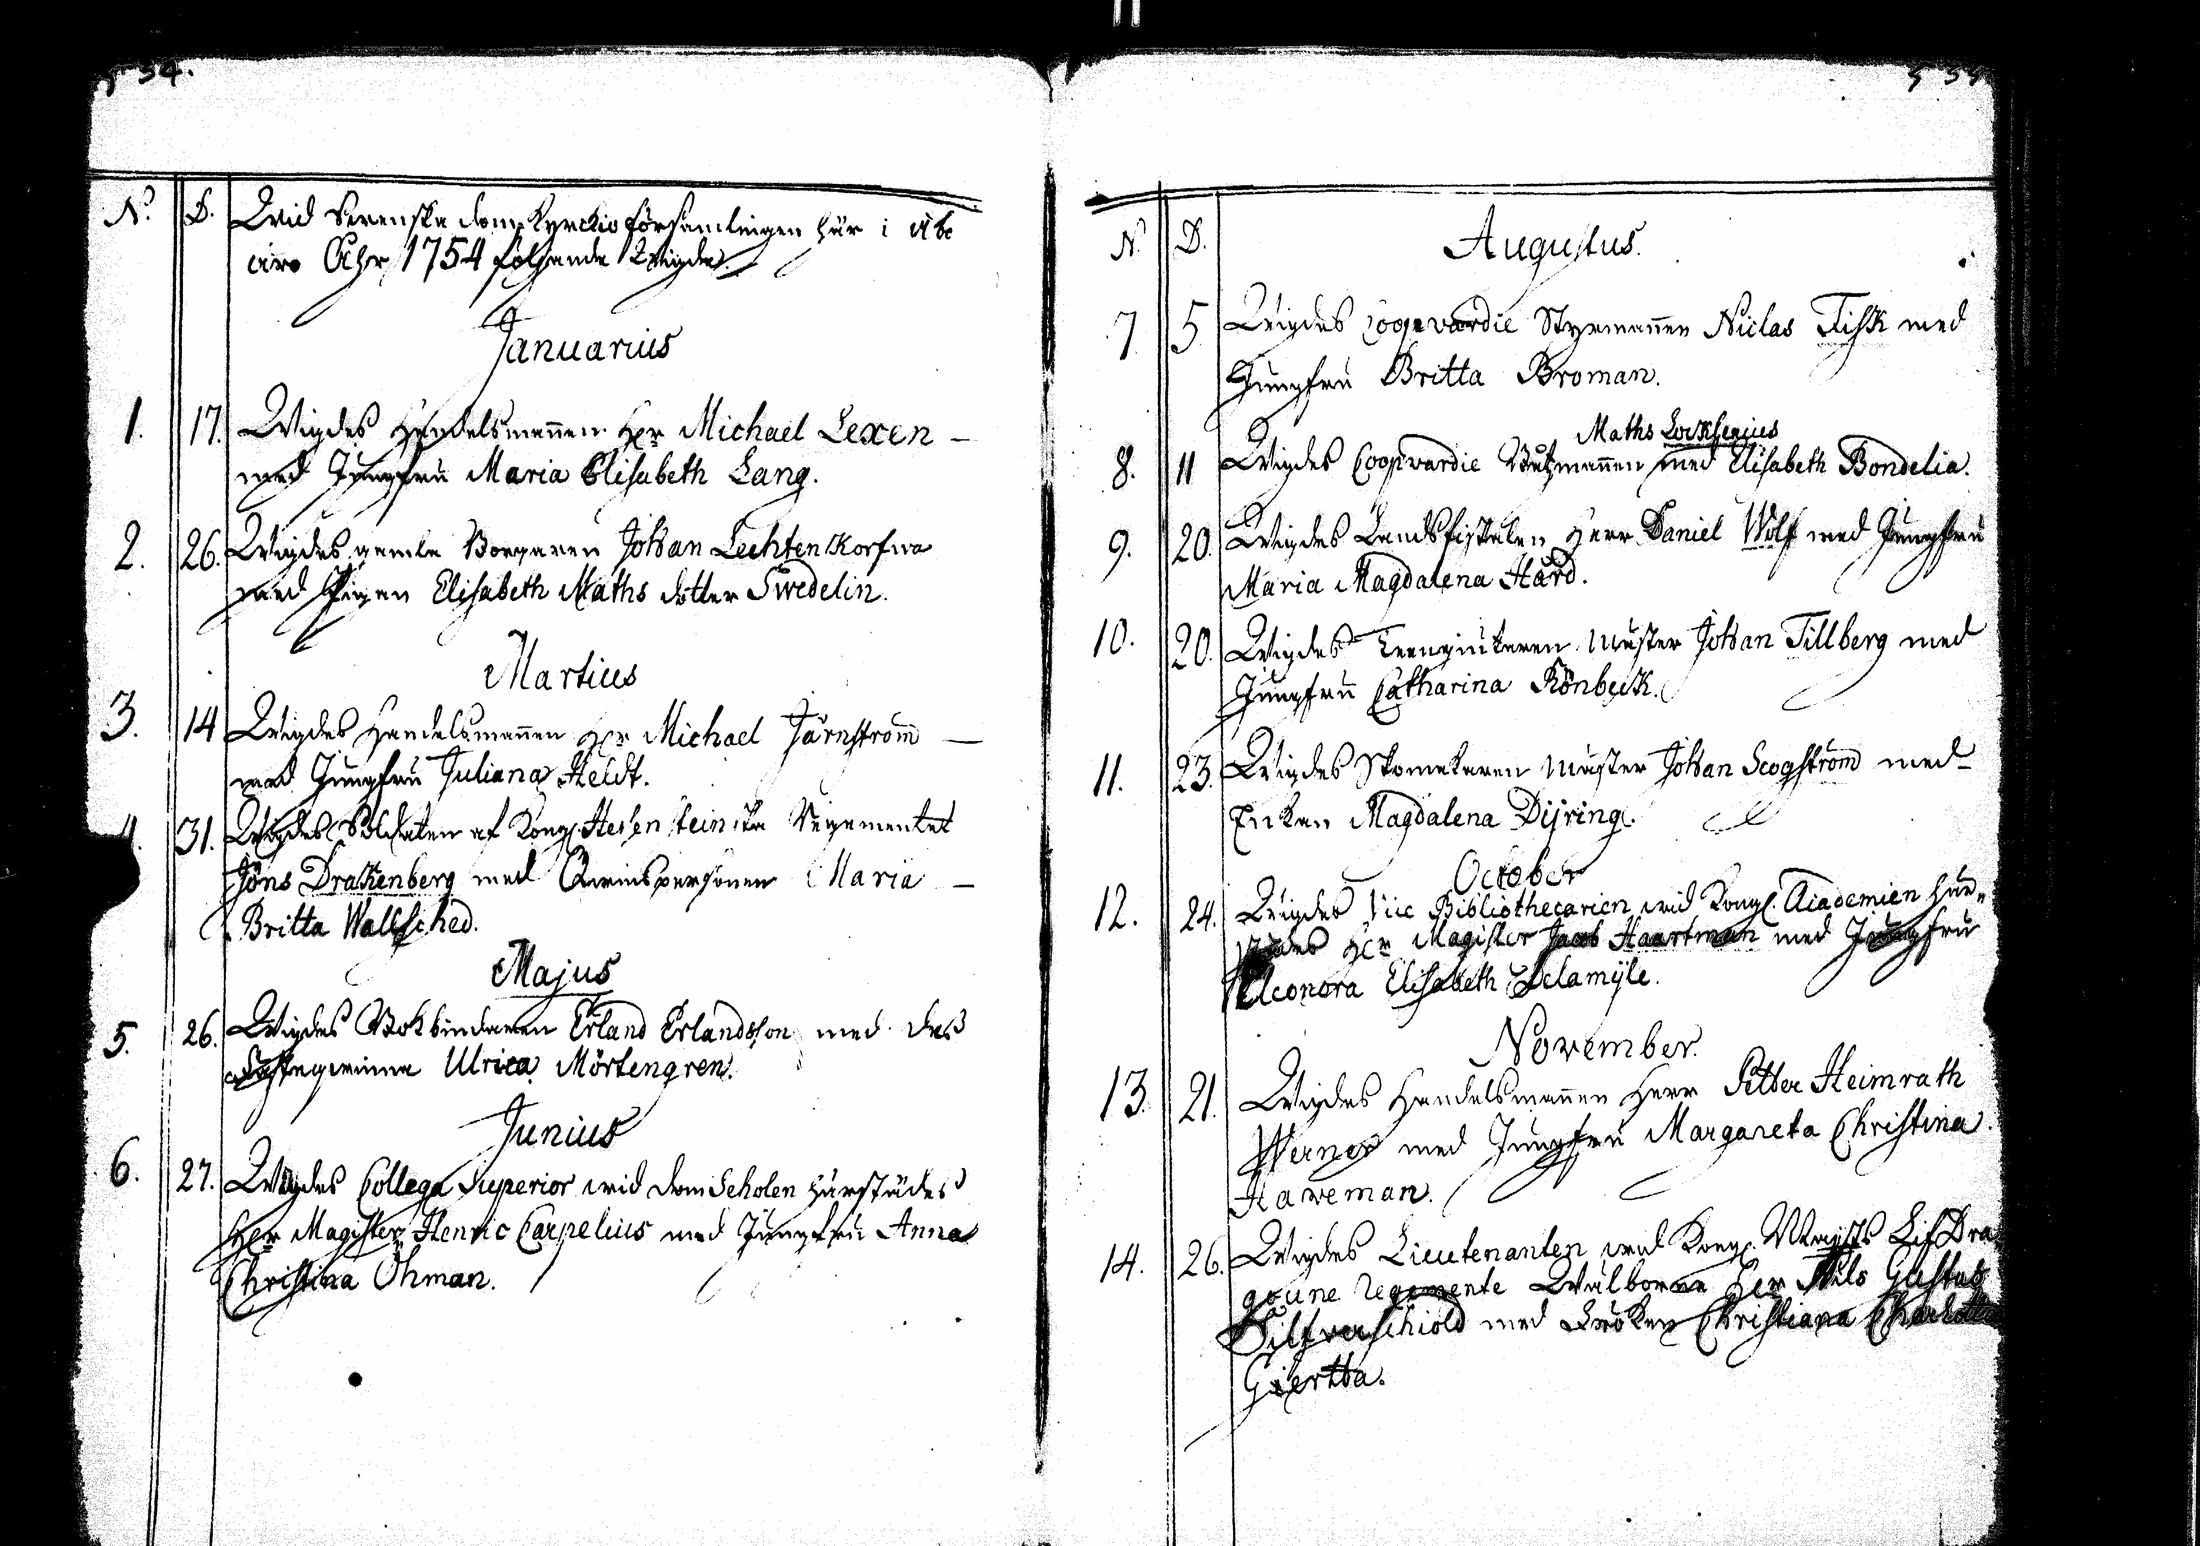 N. D. Wid Swenska domkyrckio församlingen här i Åbo
äro Åhr 1754 följande Wigde.
Januarius
1. 17. Wigdes Handelsmannen Hr Michael Lexen
med Jungfru Maria Elisabeth Lang.
2. 26. Wigdes gamla Borgaren Johan Lechtenkorfwa
med Pigan Elisabeth Maths dotter Swedelin.
Martius
3. 14 Wigdes Handelsmannen Hr Michael Järnström
med Jungfru Juliana Heldt.
4. 31. Wigdes Soldaten af Kongl. Hessensteinska Regementet
Jöns Drakenberg med Qwinspersonen Maria
Britta Wallsched.
Majus
5. 26. Wigdes Bokbindaren Erland Erlandsson med dess
Ulrica Mörtengren.
Junius
6. 27. Wigdes Collega Superior wid domScholen härstädes
Hr Magister Henric Carpelius med Jungfru Anna
Christina Öhman.
N. D. Augustus.
7. 5 Wigdes Coopvardie Styrmannen Niclas Fisk med
Jungfru Britta Broman.
Maths
8. 11 Wigdes Coopvardie med Elisabeth Bondelia.
9. 20. Wigdes Landsfiskalen Herr Daniel Wolf med Jungfru
Maria Magdalena Hård.
10. 20. Wigdes Mäster Johan Tillberg med
Jungfru Catharina Rönbeck.
11. 23. Wigdes Skomakaren Mäster Johan Scogström med
Enkan Magdalena Dijring.
October
12. 24. Wigdes Vice Bibliothecarien wid Kongl. Academien här„
städes Hr Magister Jacob Haartman med Jungfru
Eleonora Elisabeth Delamÿle.
November.
13. 21. Wigdes Handelsmannen Herr Petter Heimrath
Werner med Jungfru Margareta Christina
Haweman.
14. 26. Wigdes Lieutenanten wid Kongl. Maijts LifDra
goune Regemente Wälborne Herr Nils Gustaf
Silfverschiöld med Fröken Christiana Charlotta
Giertta.